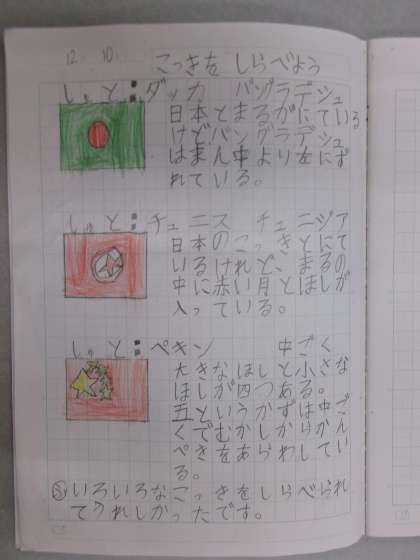 12. 10. こっきを しらべよう
しゅと:ダッカ バングラデシュ
日本とまるがにている
けどバングラデシュ
はまん中より左にず
れている。
しゅと:チュニス チュニジア
日本のこっきとにて
いるけれど、まるの
中に赤い月とほしが
入っている。
しゅと:ペキン 中ごく
大きなほしと小さな
ほしが四つある。
五というかずは中ご
くでむかしからかん
ぺきをあらわしてい
る。
いろいろなこっきをしらべられ
てうれしかったです。